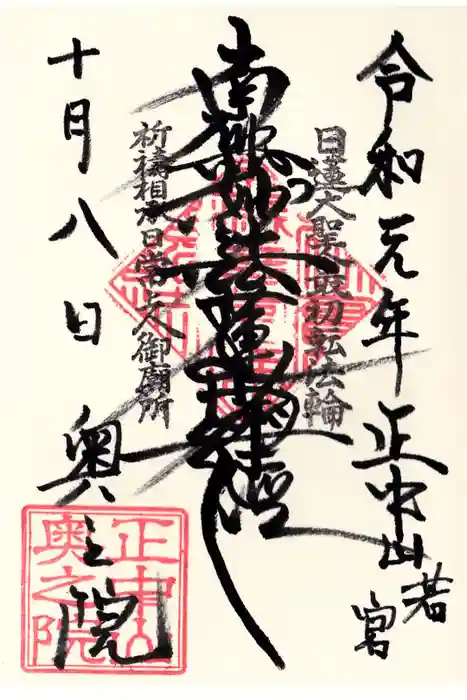 令和元年 正中山
若宮
日蓮大聖人最初転法輪
南無妙法蓮華経
祈祷相承日常上人御廟所
十月八日 奥之院
正中山
奥之院